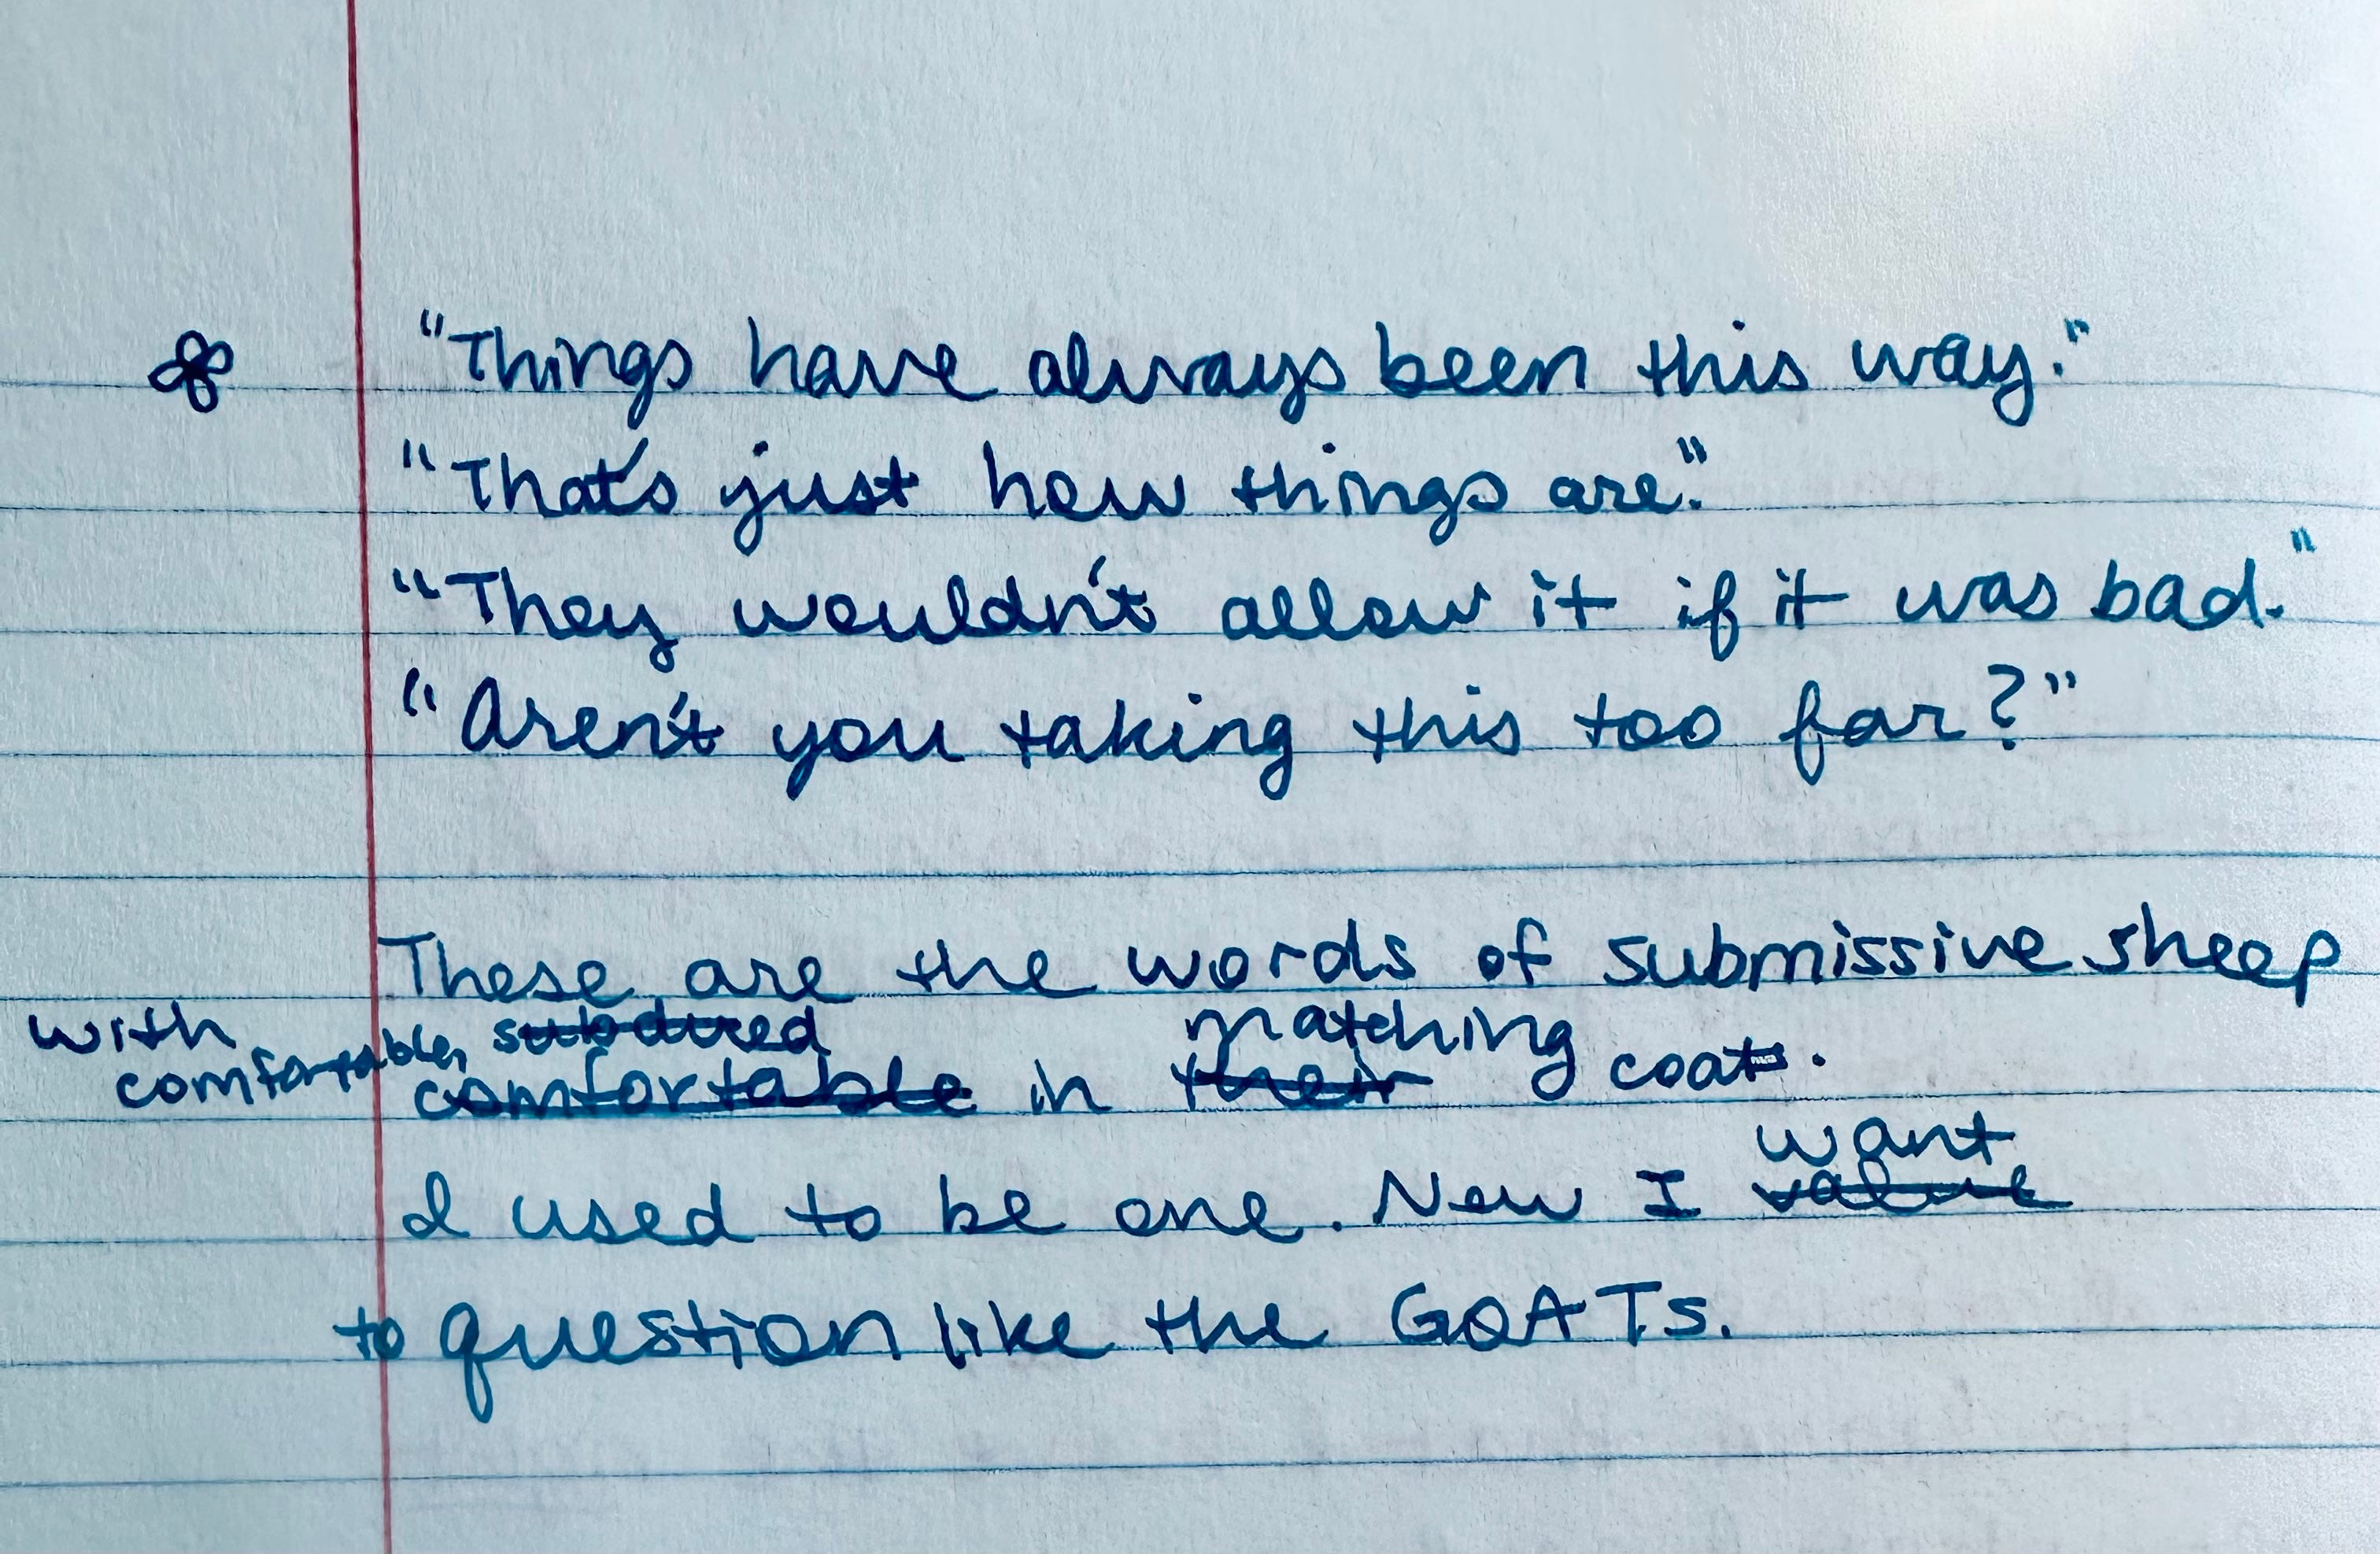 "Things have always been this way."
"That's just how things are."
"They wouldn't allow it if it was bad."
"Aren't you taking this too far?"
These are the words of submissive sheep
with comfortable, subdued matching
comfortable in their coats.
want
I used to be one. Now I value
to question like the GOATs.